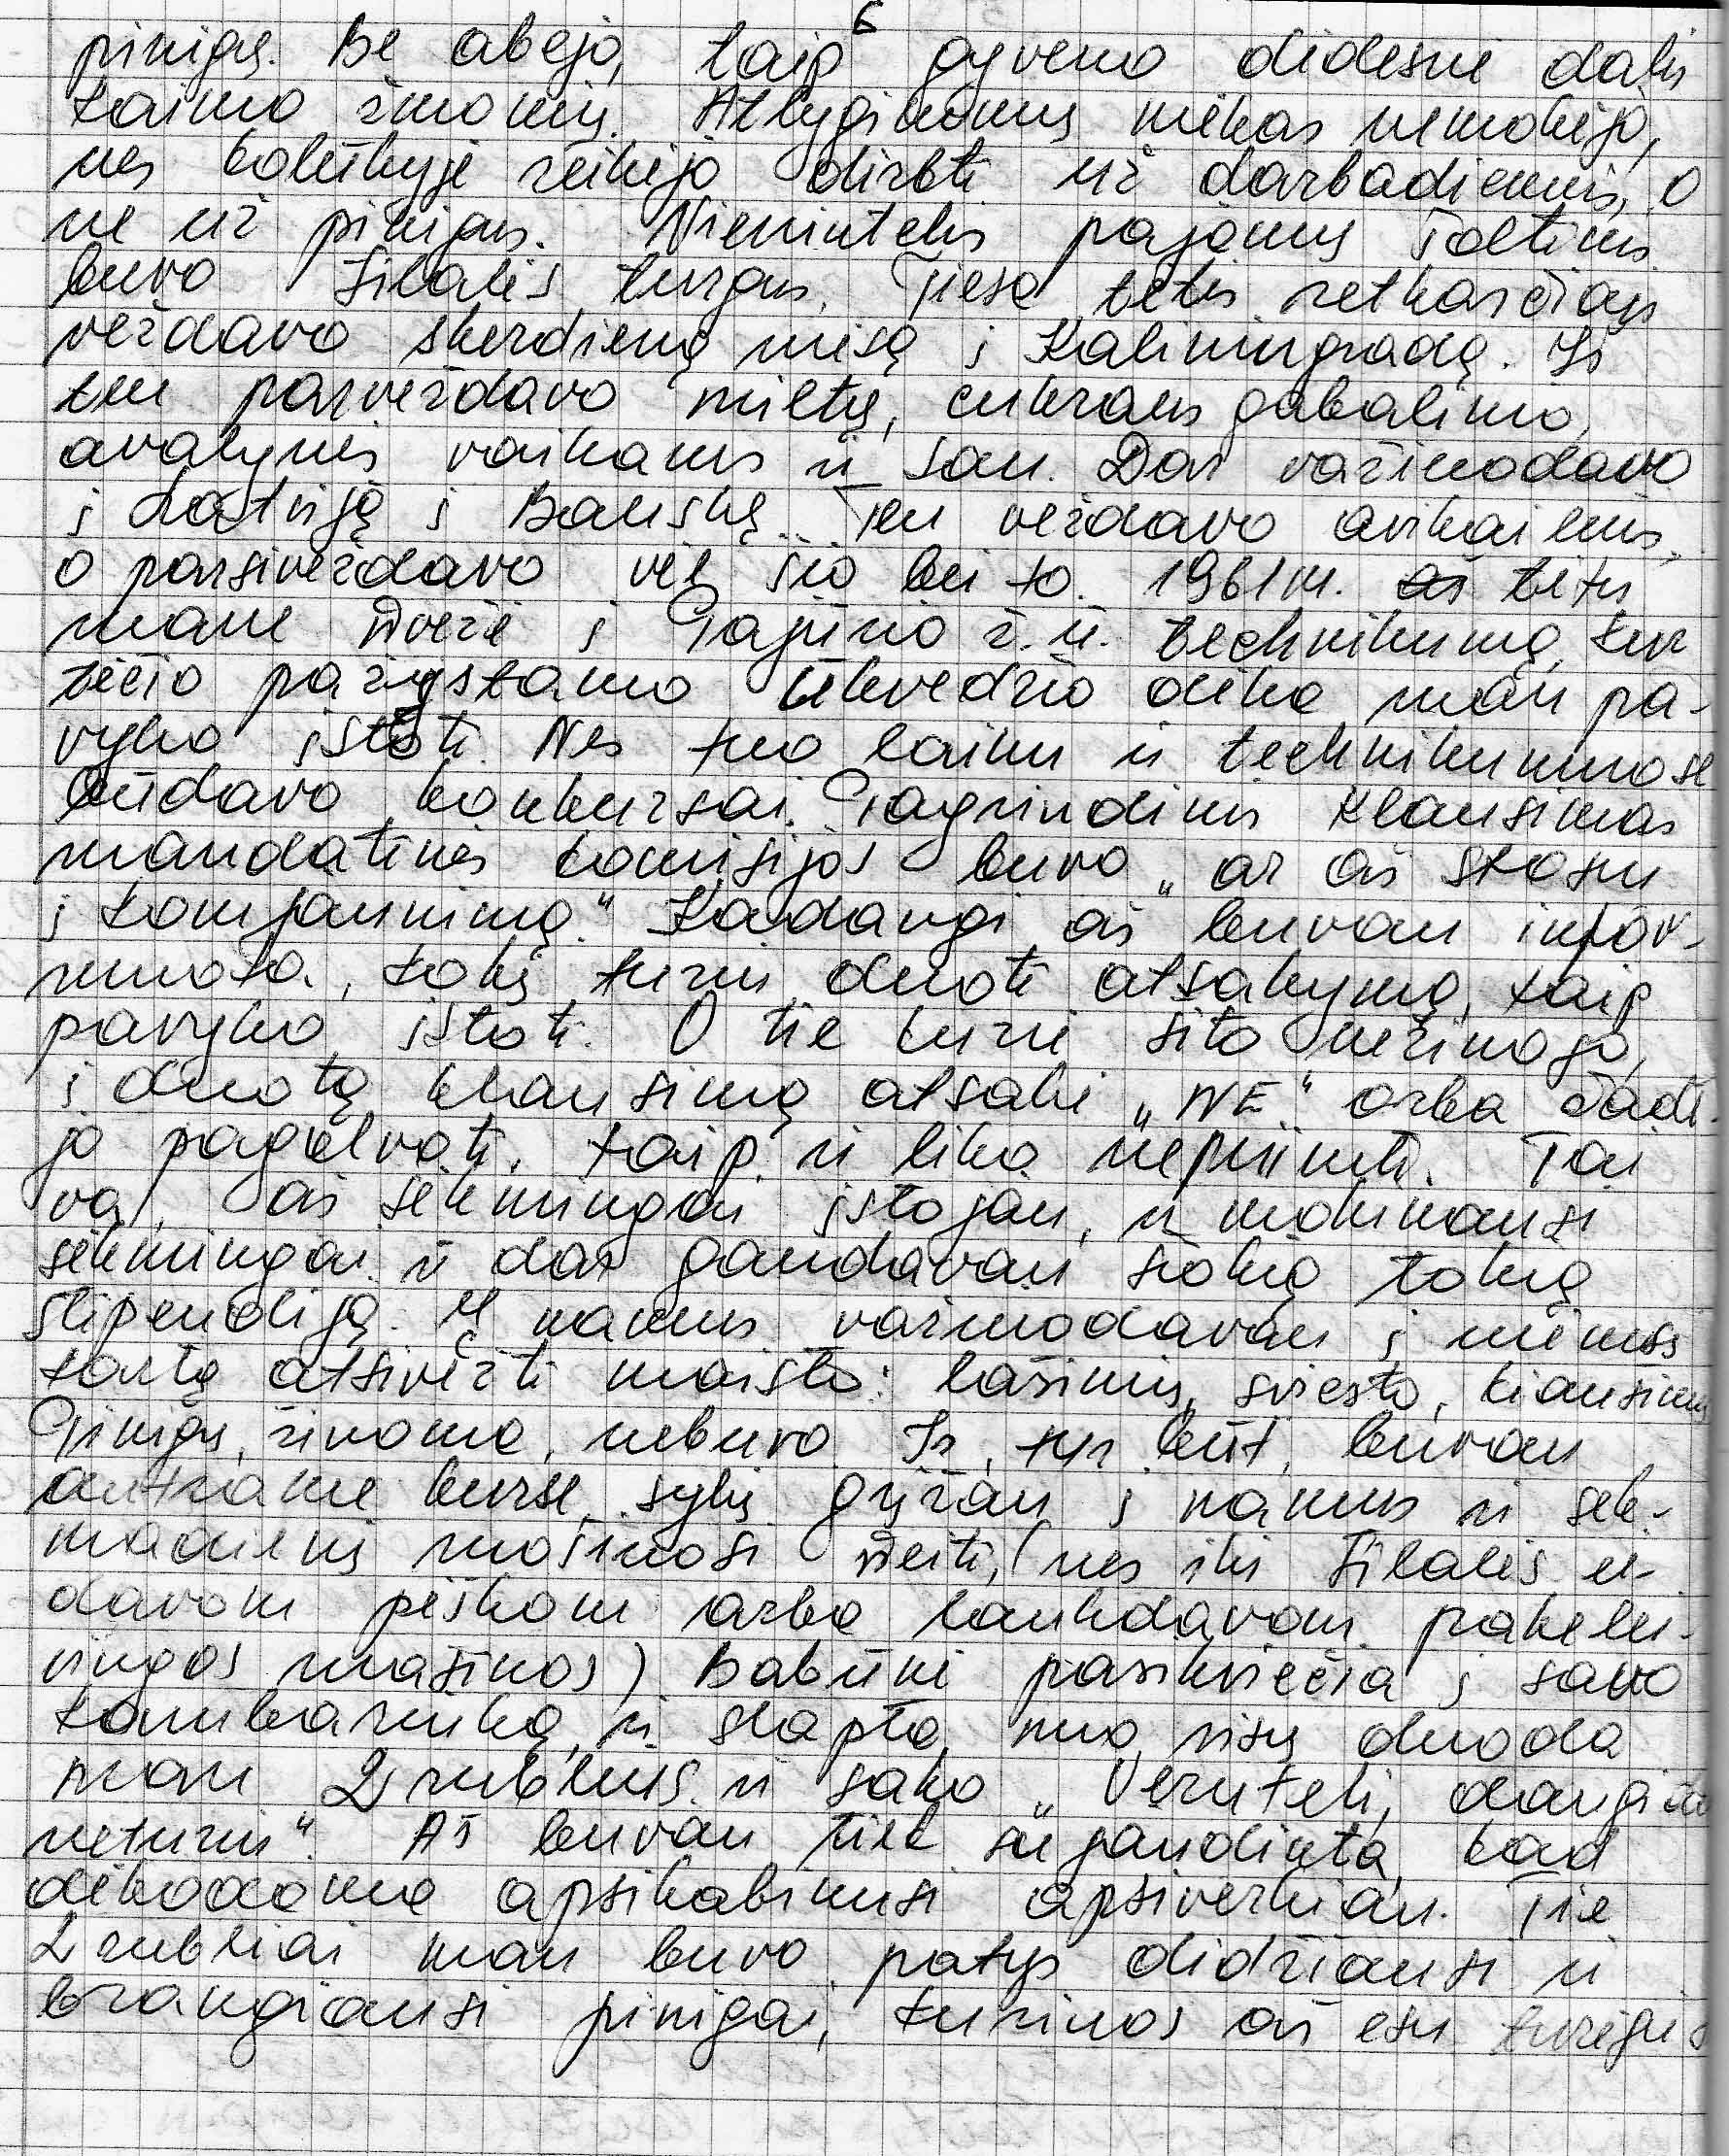 6
pinigų. Be abejo, taip gyveno didesnė dalis
kaimo žmonių. Atlyginimų niekas nemokėjo,
nes kolūkyje reikėjo dirbti už darbadienius, o
ne už pinigus. Vienintelis pajamų šaltinis
buvo Šilalės turgus. Tiesa tėtis retkarčiais
veždavo skerdieną mėsą į Kaliningradą. Iš
ten parveždavo miltų, cukraus gabalinio,
avalynės vaikams ir sau. Dar važinodavo
į Latviją į Bauskę. Ten veždavo avikailius,
o parsiveždavo vėl šio bei to. 1961 m. tėtis
mane išvežė į Pajūrio ž.ū. technikumą, kur
tėčio pažįstamo ūkvedžio dėka man pa-
vyko įstoti. Nes tuo laiku ir technikumuose
būdavo konkursai. Pagrindinis klausimas
mandatinės komisijos buvo „ar aš stosiu
į komjaunimą." Kadangi aš buvau infor-
muota, kokį turiu duoti atsakymą, taip
pavyko įstoti. O tie kurie šito nežinojo,
į duotą klausimą atsakė „NE" arba žadė-
jo pagalvoti, taip ir liko nepriimti. Tai
va, aš sėkmingai įstojau, ir mokinausi
sėkmingai ir dar gaudavau šiokią tokią
stipendiją. Į namus važinodavau į mėnesį
kartą atsivežti maisto: lašinių, sviesto, kiaušinių
Pinigų, žinoma, nebuvo. Ir, tur būt, buvau
antrame kurse, sykį grįžau į namus ir sek-
madienį ruošiuosi išeiti, (nes iki Šilalės ei-
davom pėškom arba laukdavom pakelei-
vingos mašinos) Babūnė pasikviečia į savo
kambariuką, ir slapta nuo visų duoda
man 2 rublius ir sako „Verutėli, daugiau
neturiu". Aš buvau tiek sugraudinta, kad
dėkodama apsikabinusi apsiverkiau. Tie
2 rubliai man buvo patys didžiausi ir
brangiausi pinigai, kuriuos aš esu turėjusi